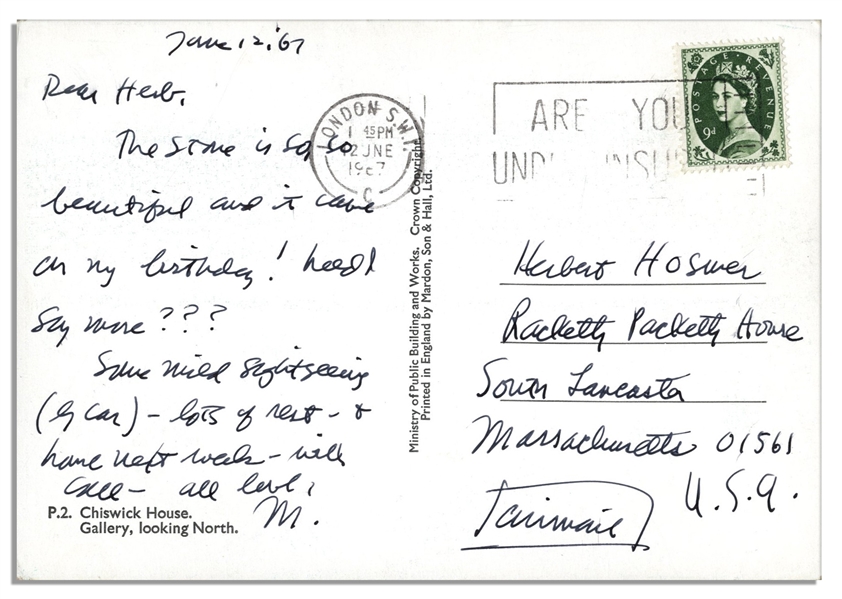 June 12, '67
Dear Herb,
The stone is so, so
beautiful and it came
on my birthday! Need I
say more ???
Some mild sightseeing
(by car) - lots of rest - &
home next week - will
call - all love,
M.
P.2. Chiswick House.
Gallery, looking North.
LONDON S.W.1.
1 45PM
12 JNE
1967
C
Ministry of Public Building and Works. Crown Copyright.
Printed in England by Mardon, Son & Hall, Ltd.
ARE YOU
POSTAGE REVENUE
9d
Herbert Hosmer
Racketty Packetty House
South Lancaster
Massachusetts 01561
U.S.A.
airmail